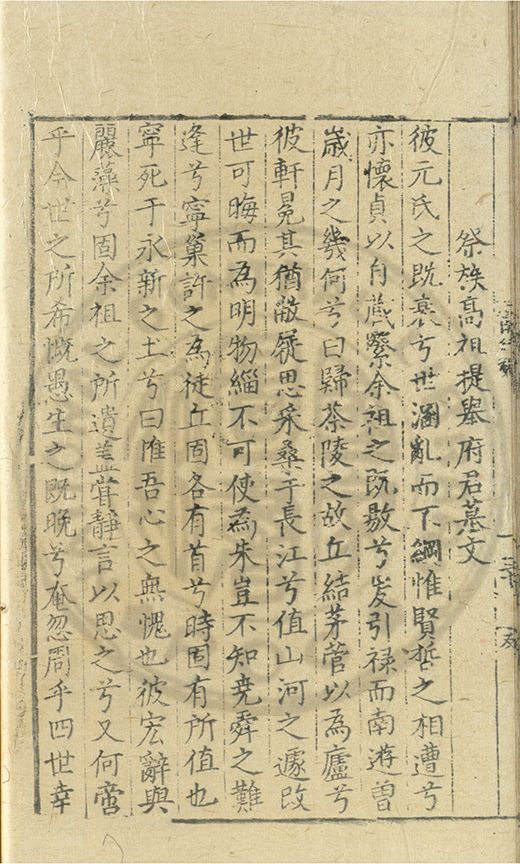 祭族高祖提舉府君墓文
彼元氏之既衰兮世溷亂而不綱惟賢哲之相遭兮
亦懷貞以自藏繄余祖之既敭兮爰引祿而南遊曽
歲月之幾何兮曰歸茶陵之故丘結茅菅以為廬兮
彼軒冕其猶敝屣思采桑于長江兮值山河之遽改
世可晦而為明物緇不可使為朱豈不知堯舜之難
逢兮寧巢許之為徒丘固各有首兮時固有所值也
寧死于永新之土兮曰惟吾心之無愧也彼宏辭與
麗藻兮固余祖之所遺蓋嘗靜言以思之兮又何啻
乎今世之所希慨愚生之既晚兮奄忽周乎四世幸